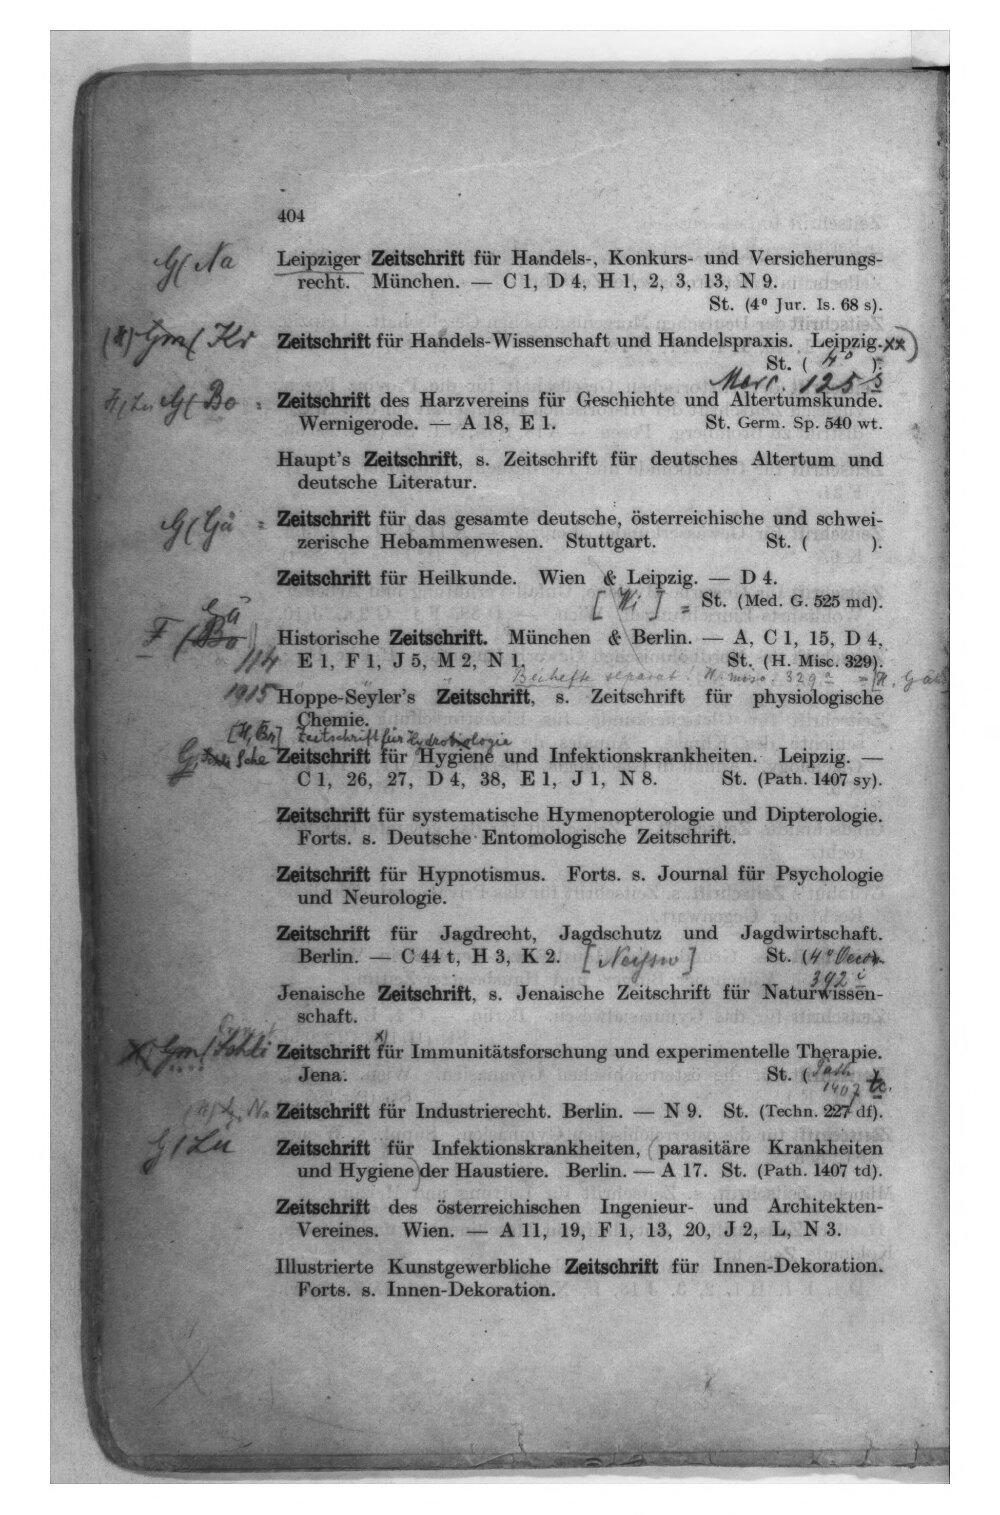 404
G( Na Leipziger Zeitschrift für Handels-, Konkurs- und Versicherungs-
recht. München. — C 1, D 4, H 1, 2, 3, 13, N 9.
St. (4° Jur. Is. 68 s).
(H) Gm( Kr Zeitschrift für Handels-Wissenschaft und Handelspraxis. Leipzig. xx)
St. ( 4° ).
Merc. 125 s
G( Bo Zeitschrift des Harzvereins für Geschichte und Altertumskunde.
Wernigerode. — A 18, E 1. St. Germ. Sp. 540 wt.
Haupt's Zeitschrift, s. Zeitschrift für deutsches Altertum und
deutsche Literatur.
G( Gä Zeitschrift für das gesamte deutsche, österreichische und schwei-
zerische Hebammenwesen. Stuttgart. St. ( ).
Zeitschrift für Heilkunde. Wien & Leipzig. — D 4.
[ Wi ] = St. (Med. G. 525 md).
Gä
F (Bo Historische Zeitschrift. München & Berlin. — A, C 1, 15, D 4,
114 E 1, F 1, J 5, M 2, N 1. St. (H. Misc. 329).
Beihefte separat. H. misc. 329 a
1915 Hoppe-Seyler's Zeitschrift, s. Zeitschrift für physiologische
Chemie.
[H, Br] Zeitschrift für Hydrobiologie
G Sche Zeitschrift für Hygiene und Infektionskrankheiten. Leipzig. —
C 1, 26, 27, D 4, 38, E 1, J 1, N 8. St. (Path. 1407 sy).
Zeitschrift für systematische Hymenopterologie und Dipterologie.
Forts. s. Deutsche Entomologische Zeitschrift.
Zeitschrift für Hypnotismus. Forts. s. Journal für Psychologie
und Neurologie.
Zeitschrift für Jagdrecht, Jagdschutz und Jagdwirtschaft.
Berlin. — C 44 t, H 3, K 2. St. (4° Oecon.
392 i
Jenaische Zeitschrift, s. Jenaische Zeitschrift für Naturwissen-
schaft.
Gm( Zeitschrift x) für Immunitätsforschung und experimentelle Therapie.
Jena. St. (Path
1407 tc.
Na Zeitschrift für Industrierecht. Berlin. — N 9. St. (Techn. 227 df).
G( Lü Zeitschrift für Infektionskrankheiten, (parasitäre Krankheiten
und Hygiene) der Haustiere. Berlin. — A 17. St. (Path. 1407 td).
Zeitschrift des österreichischen Ingenieur- und Architekten-
Vereines. Wien. — A 11, 19, F 1, 13, 20, J 2, L, N 3.
Illustrierte Kunstgewerbliche Zeitschrift für Innen-Dekoration.
Forts. s. Innen-Dekoration.